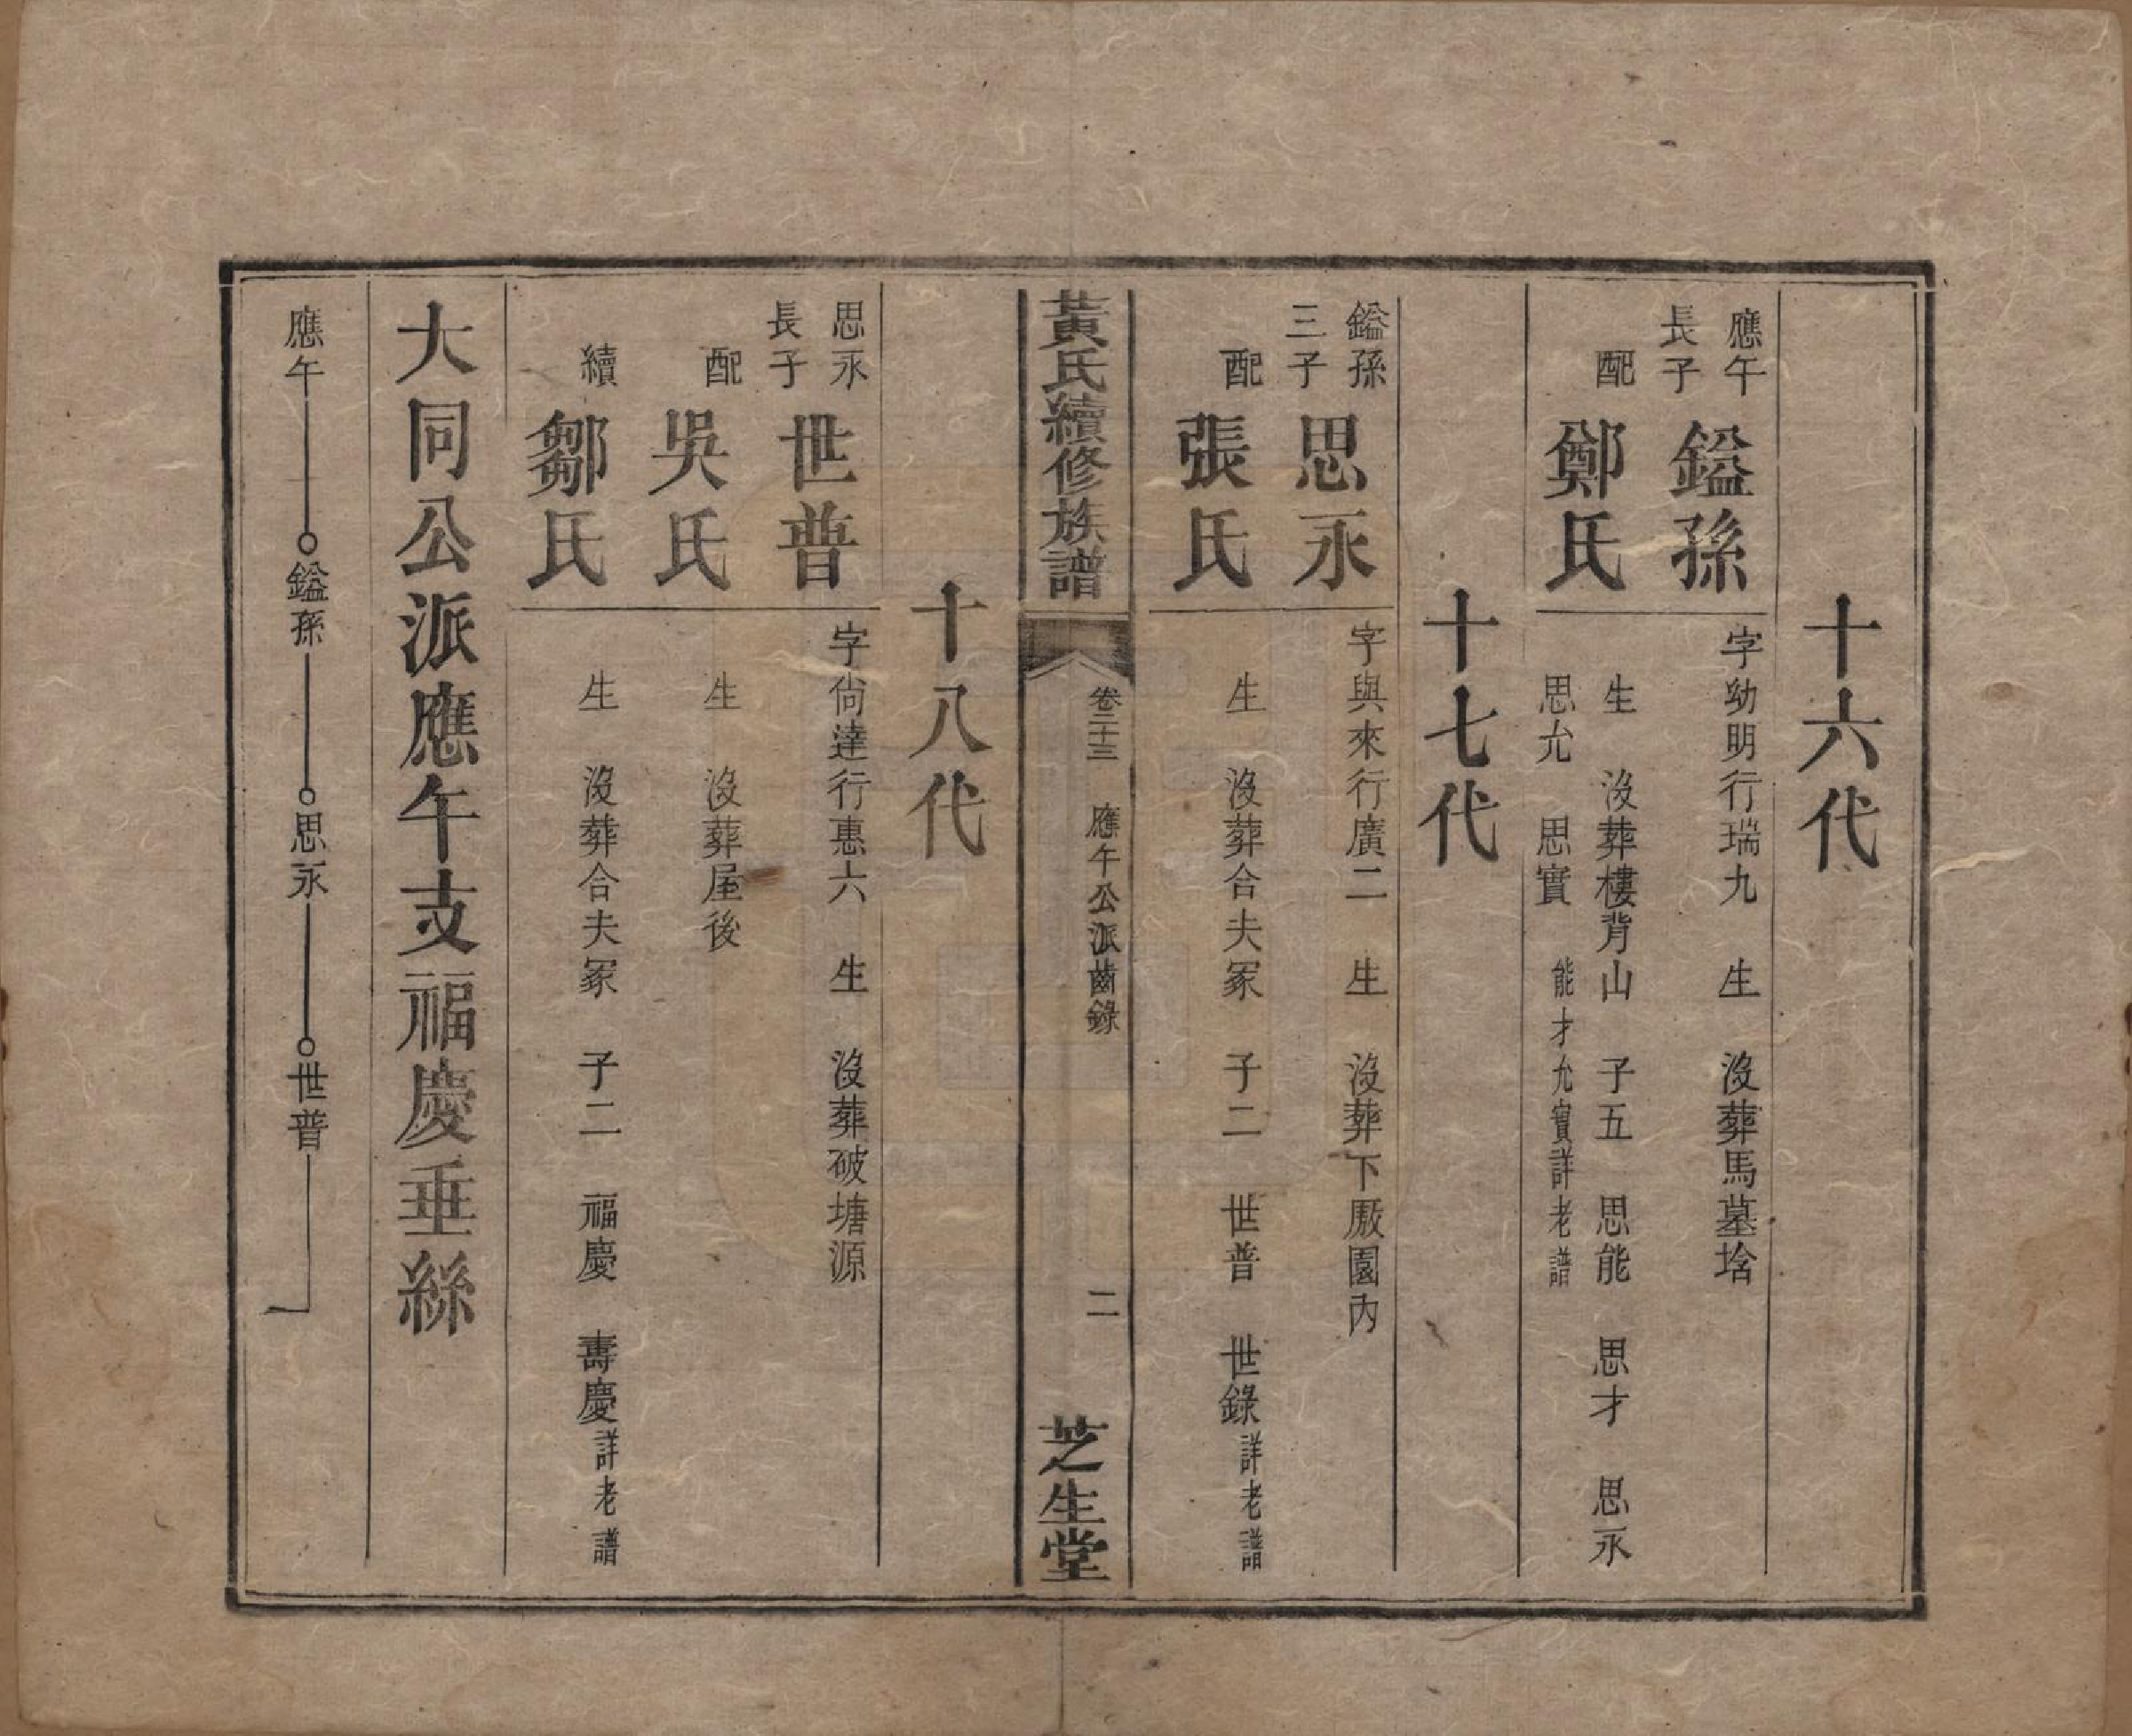 十六代
應午
長子
鎰孫
字幼明行瑞九 生 沒葬馬墓墖
配
鄭氏
生 沒葬樓背山 子五 思能 思才 思永
思允 思實 能才允實詳老譜
十七代
鎰孫
三子
思永
字與來行廣二 生 沒葬下厫園內
配
張氏
生 沒葬合夫冢 子二 世普 世錄詳老譜
黃氏續修族譜
卷二十三 應午公派齒錄 二
芝生堂
十八代
思永
長子
世普
字尙達行惠六 生 沒葬破塘源
配
吳氏
生 沒葬屋後
續
鄒氏
生 沒葬合夫冢 子二 福慶 壽慶詳老譜
大同公派應午支福慶垂絲
應午 鎰孫 思永 世普